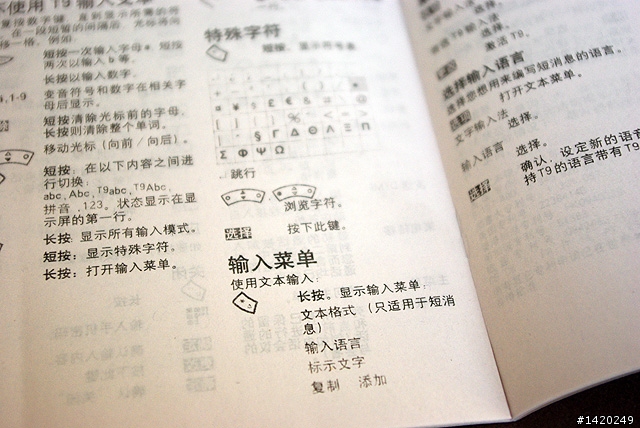 使用 T9 输入文本
短按一次输入字母a 短按
两次以输入b等.
长按以输入数字.
变音符号和数字在相关字
母后显示.
短按清除光标前的字母,
长按则清除整个单词.
移动光标 (向前/向后).
短按: 在以下内容之间进
行切换:
abc, Abc, T9abc, T9Abc,
拼音,123. 状态显示在显
示屏的第一行.
长按: 显示所有输入模式.
短按: 显示特殊字符.
长按: 打开输入菜单.
特殊字符
短按. 显示符号表
¤ ¥ $ £ € & #
§ Γ Δ Θ Λ Ξ Π
Σ Φ Ψ Ω
跳行
浏览字符.
选择 按下此键.
输入菜单
使用文本输入:
长按. 显示输入菜单:
文本格式 (只适用于短消
息)
输入语言
标示文字
复制 添加
选择.
激活T9.
选择输入语言
选择您想用来编写短消息的语言.
打开文本菜单.
文字输入法 选择.
输入语言 选择.
选择 确认. 设定新的语言
持T9的语言带有T9
#1420249